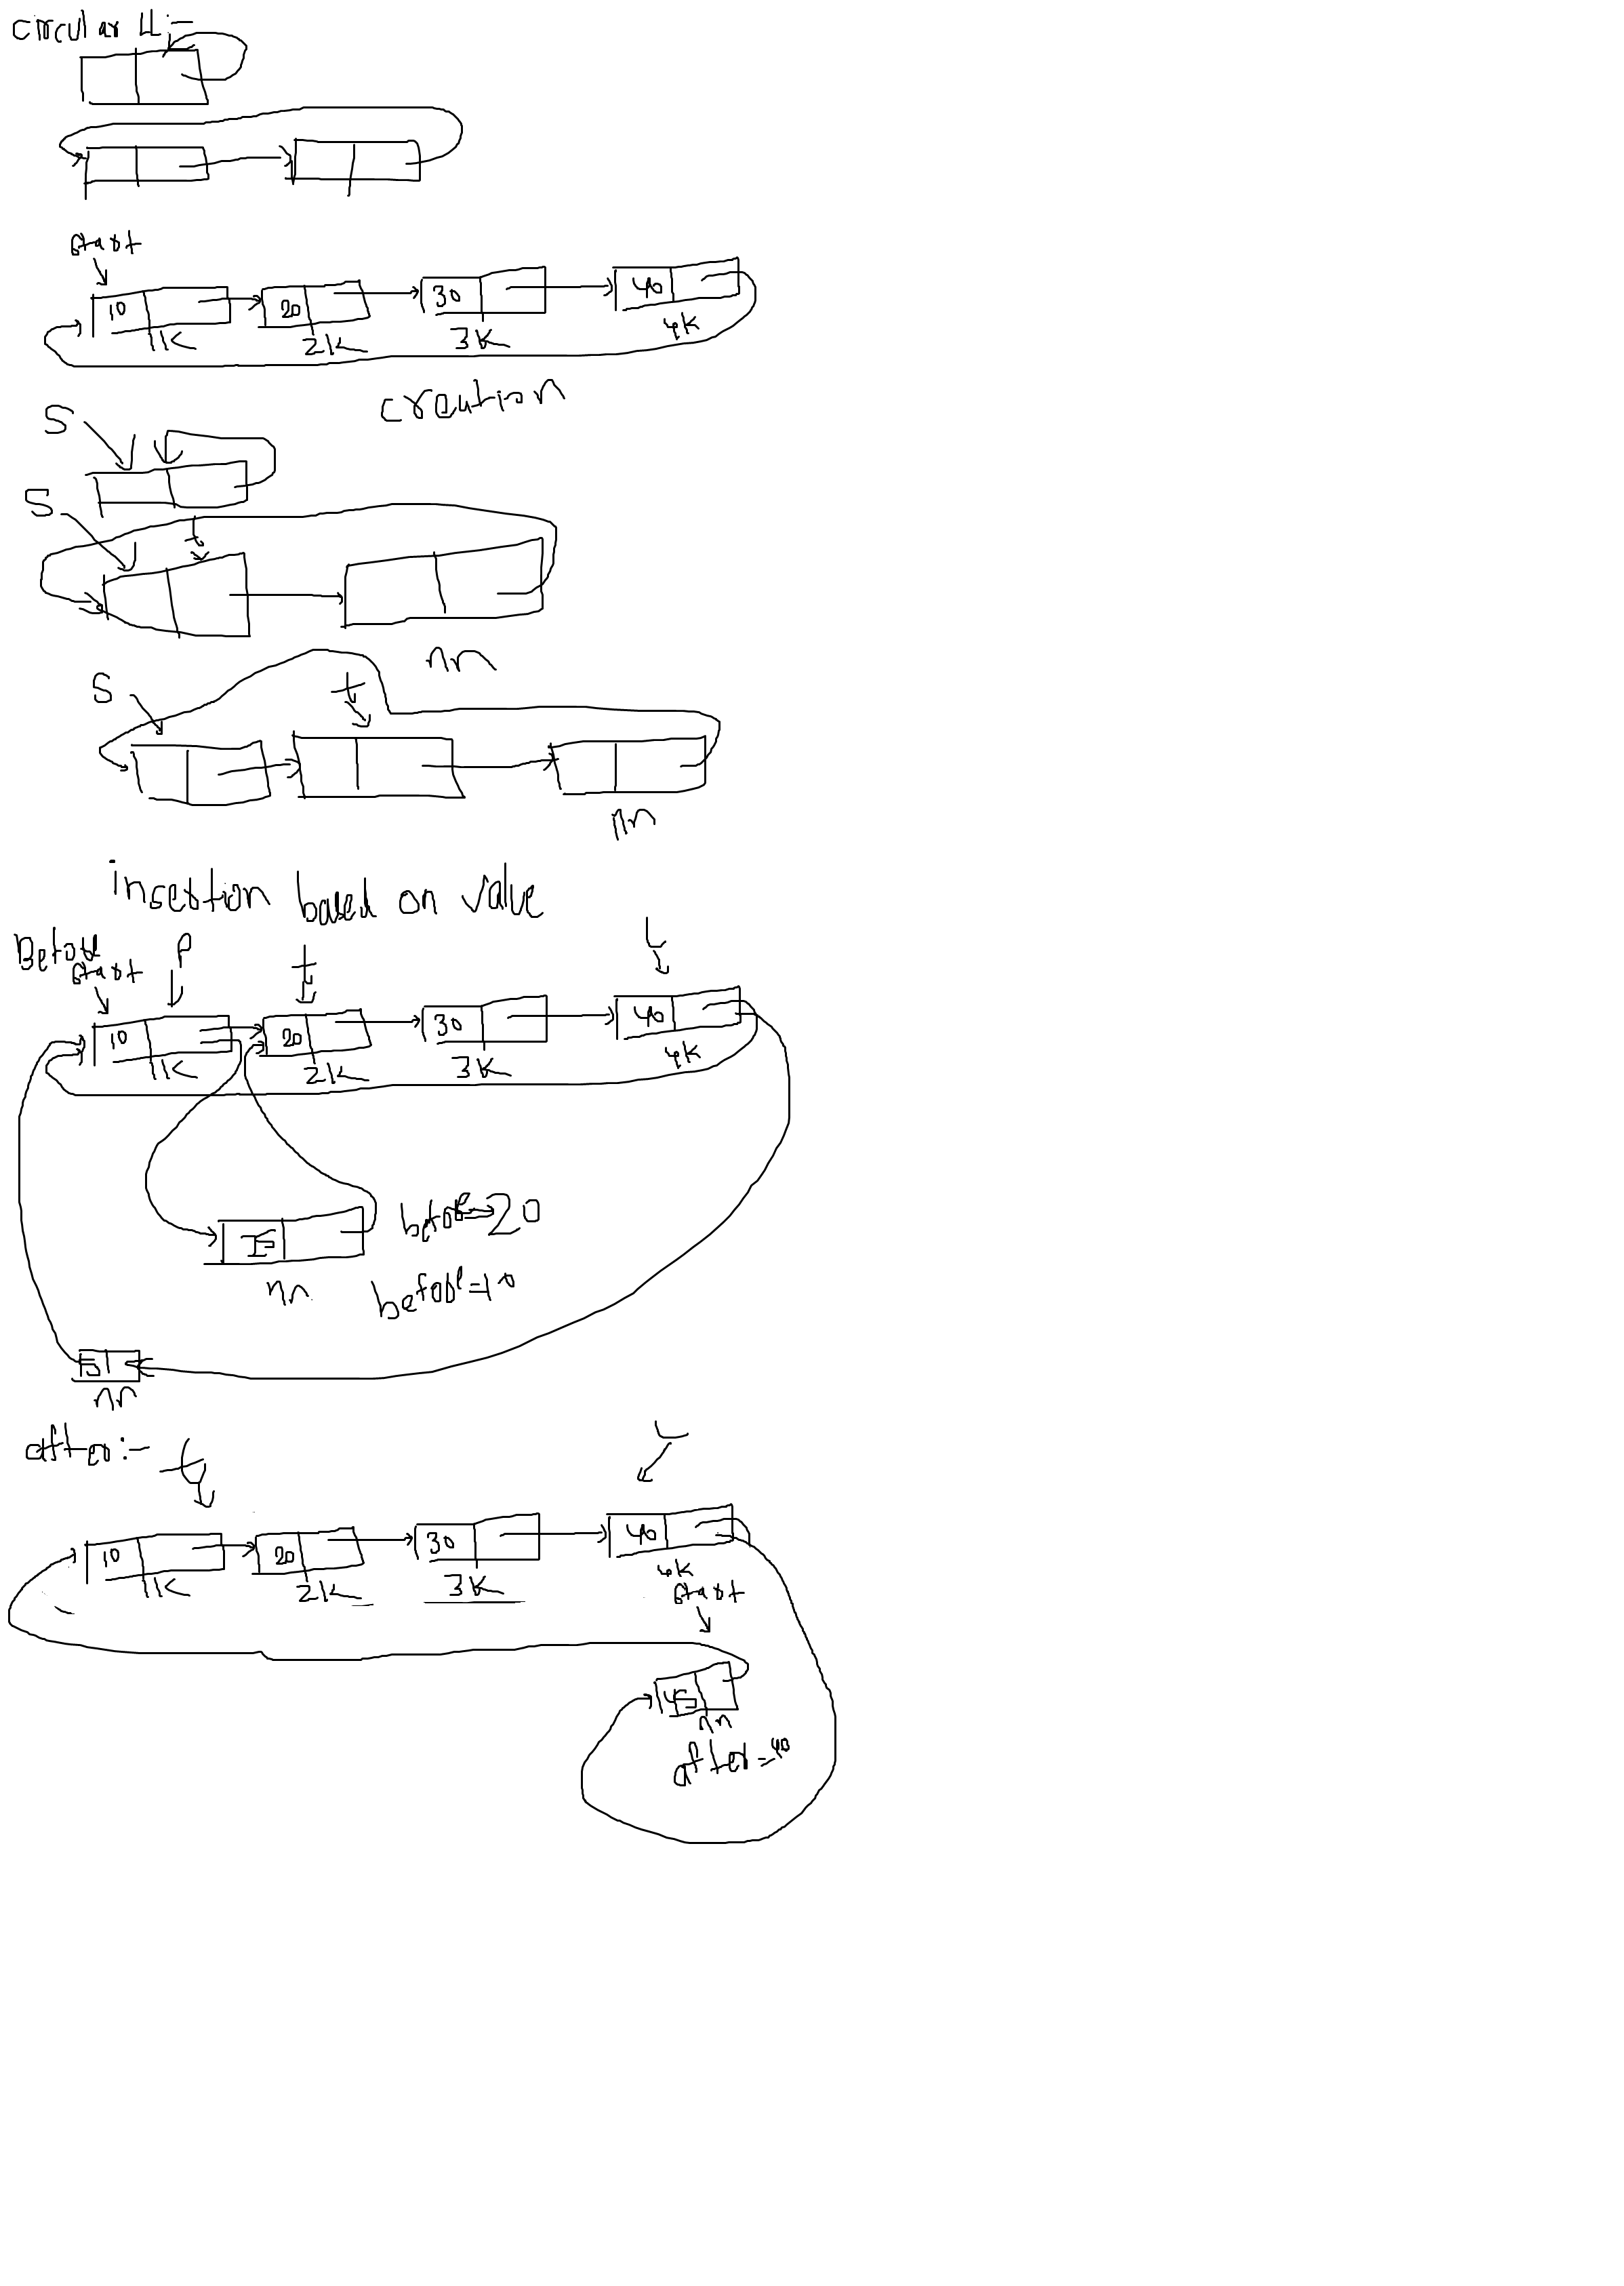 circular LL:-
start
10 20 30 40
1K 2K 3K 4K
creation
S
S t
nn
S t
nn
insertion based on value
Before
start P t L
10 20 30 40
1K 2K 3K 4K
before=20
15
nn before=10
5
nn
after:- t L
10 20 30 40
1K 2K 3K 4K
start
45
nn
after=40